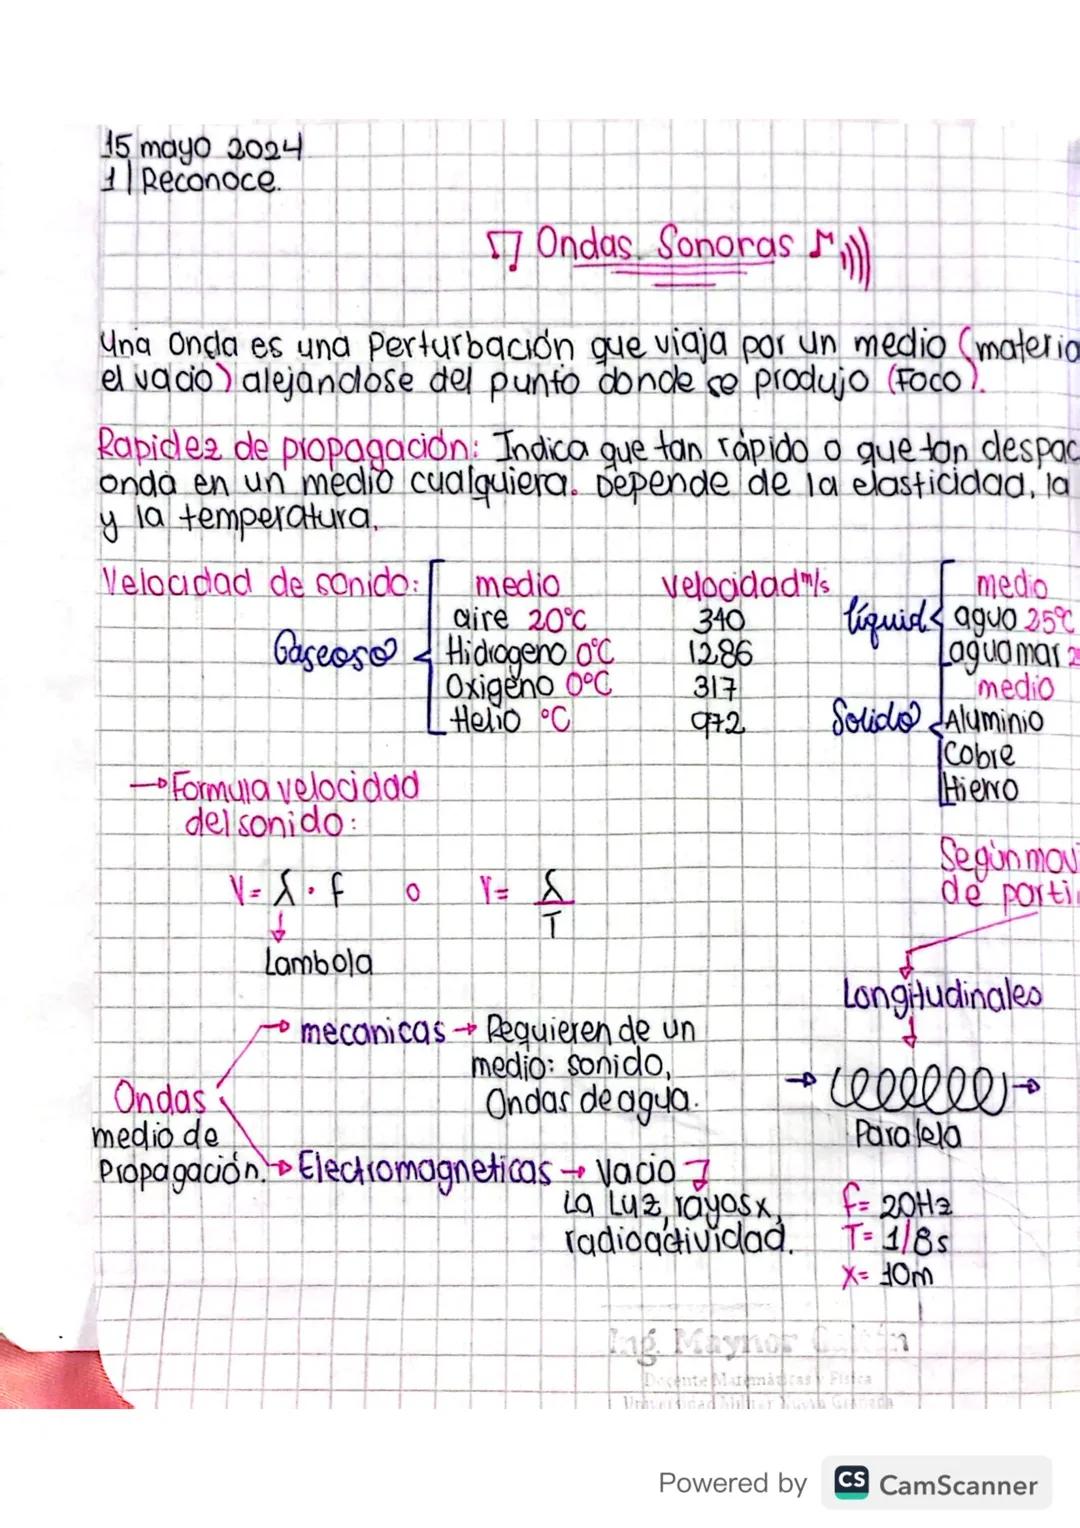 15 mayo 2024
1| Reconoce.
Ondas Sonoras
Una Onda es una Perturbación que viaja por un medio (materia
el vacio) alejándose del punto donde se produjo (Foco).
Rapidez de propagación: Indica que tan rápido o que tan despac
onda en un medio cualquiera. Depende de la elasticidad, la
y la temperatura.
Velocidad de sonido:
Gaseoso
medio velocidad m/s
aire 20°C 340
Hidrogeno 0°C 1286
Oxigeno 0°C 317
Helio °C 972
líquido
medio
agua 25°C
agua mar 2
Solido
medio
Aluminio
Cobre
Hierro
→ Formula velocidad
del sonido:
V= λ · f o V= λ/T
Lambola
Ondas
medio de
Propagación.
→ mecanicas → Requieren de un
medio: sonido,
Ondas de agua.
→ Electromagneticas → Vacio
La Luz, rayos x,
radioactividad.
Según mov
de parti
Longitudinales
Paralela
f= 20Hz
T= 1/8s
X= 10m
Ing. Maynor
Docente Matemáticas y Física
Powered by CS CamScanner